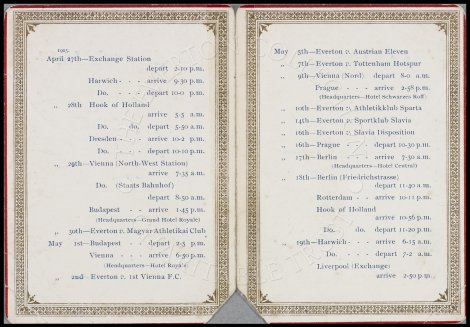 1905.
April 27th—Exchange Station
depart 2-10 p.m.
Harwich - - - arrive 9-30 p.m.
Do. - - - depart 10-0 p.m.
„ 28th Hook of Holland
arrive 5-5 a.m.
Do. do. depart 5-50 a.m.
Dresden - - - arrive 10-2 p.m.
Do. - - - depart 10-10 p.m.
„ 29th—Vienna (North-West Station)
arrive 7-35 a.m.
Do. (Staats Bahnhof)
depart 8-50 a.m.
Budapest - - arrive 1-45 p.m.
(Headquarters—Grand Hotel Royale)
„ 30th—Everton v. Magyar Athletikai Club
May 1st—Budapest - - depart 2-5 p.m.
Vienna - - - arrive 6-50 p.m.
(Headquarters—Hotel Royal)
„ 2nd—Everton v. 1st Vienna F.C.
May 5th—Everton v. Austrian Eleven
„ 7th—Everton v. Tottenham Hotspur
„ 9th—Vienna (Nord) depart 8-0 a.m.
Prague - - - arrive 2-58 p.m.
(Headquarters—Hotel Schwarzes Roß)
„ 10th—Everton v. Athletikklub Sparta
„ 14th—Everton v. Sportklub Slavia
„ 16th—Everton v. Slavia Disposition
„ 16th—Prague - - depart 10-30 p.m.
„ 17th—Berlin - - arrive 7-30 a.m.
(Headquarters—Hotel Central)
„ 18th—Berlin (Friedrichstrasse)
depart 11-40 a.m.
Rotterdam - - arrive 10-11 p.m.
Hook of Holland
arrive 10-56 p.m.
Do. do. depart 11-20 p.m.
19th—Harwich - - arrive 6-15 a.m.
Do. - - - depart 7-2 a.m.
Liverpool (Exchange)
arrive 2-50 p.m.